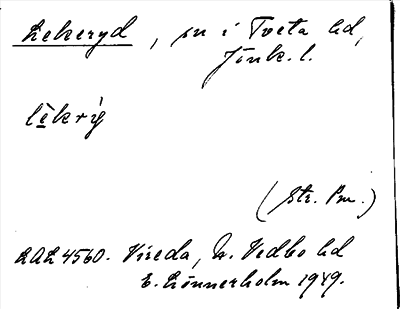 Lekeryd, sn i Tveta hd,
Jönk. l.
lèkrỳ
(Str. Pm.)
LAL 4560. Vireda, N. Vedbo hd
E. Lönnerholm 1949.